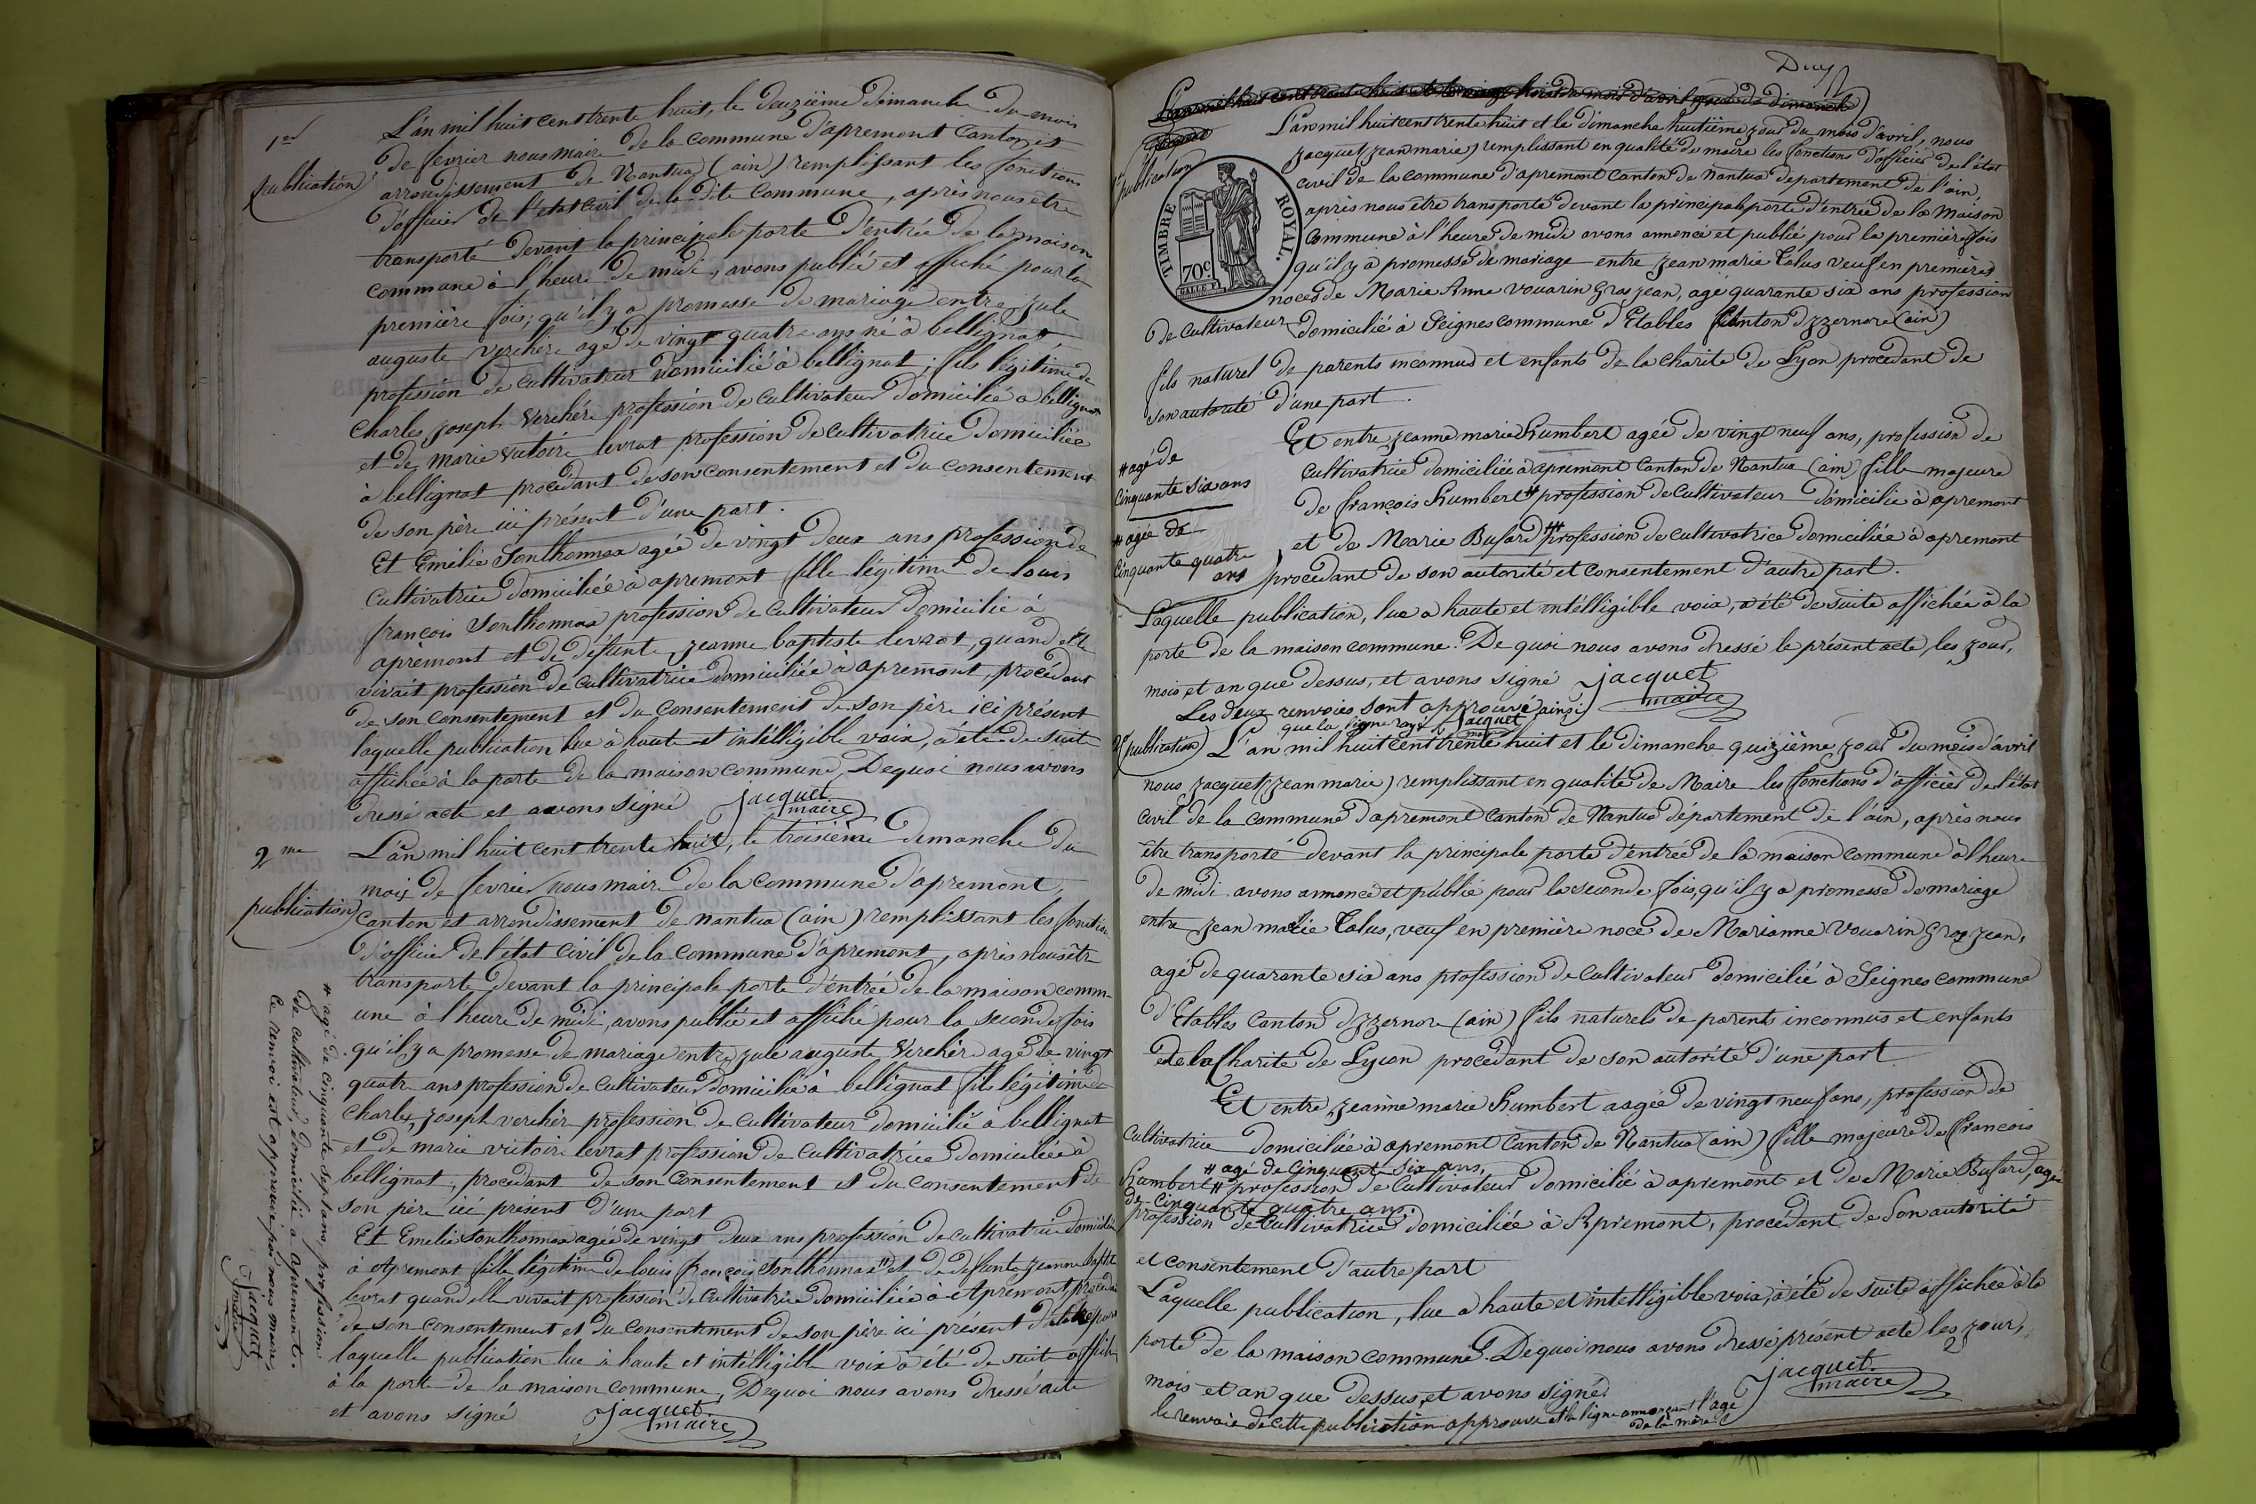 1re
publication
L'an mil huit cent trente huit, le deuzième dimanche du mois
de fevrier nous maire de la commune d'apremont canton et
arrondissement de Nantua (ain) remplissant les fonctions
d'officier de l'état civil de la dite commune, après nous être
transporté devant la principale porte d'entrée de la maison
commune à l'heure de midi, avons publié et affiché pour la
première fois, qu'il y a promesse de mariage entre jule
auguste Verchère agé de vingt quatre ans né à bellignat,
profession de cultivateur domicilié à bellignat ; fils légitime de
Charles joseph Verchére profession de cultivateur domicilié à bellignat
et de marie victoire levrat profession de cultivatrice domiciliée
à bellignat procédant de son consentement et du consentement
de son père ici présent d'une part.
Et Emélie Sonthonnax agée de vingt deux ans profession de
cultivatrice domiciliée à apremont fille légitime de louis
françois Sonthonnax profession de cultivateur domicilié à
apremont et de défunte jeanne baptiste levrat, quand elle
vivait profession de cultivatrice domiciliée à apremont, procédant
de son consentement et du consentement de son père ici présent
laquelle publication lue à haute et intélligible voix, a été de suite
affichée à la porte de la maison commune, De quoi nous avons
dressé acte et avons signé Jacquet
maire
2me
publication
L'an mil huit cent trente huit, le troisième dimanche du
mois de fevrier nous maire de la commune d'apremont,
canton et arrondissement de nantua (ain) remplissant les fonctions
d'officier de l'état civil de la commune d'apremont, après nous être
transporté devant la principale porte d'éntrée de la maison comm-
une à l'heure de midi, avons publié et affiché pour la seconde fois
qu'il y a promesse de mariage entre jule auguste Verchère agé de vingt
quatre ans profession de cultivateur domicilié à bellignat fils légitime de
Charles joseph verchèr profession de cultivateur domicilié à bellignat
et de marie victoire levrat profession de cultivatrice domiciliée à
bellignat, procédant de son consentement et du consentement de
son père ici présent d'une part
Et Emelie Sonthonnax agée de vingt deux ans profession de cultivatrice domiciliée
à Apremont fille légitime de louis françois Sonthonnax # et de defunte jeanne baptiste
levrat quand elle vivait profession de cultivatrice domiciliée à Apremont, procédant
de son consentement et du consentement de son père ici présent d'autre part
laquelle publication lue à haute et intélligible voix a été de suite affichée
à la porte de la maison commune, De quoi nous avons dressé acte
et avons signé Jacquet
maire
# agé de cinquante sept ans, profession
de cultivateur, domicilié à apremont.
Ce renvoi est approuvé par nous maire
Jacquet
maire
L'an mil huit cent trente huit et le
mois d'avril
dimanche
1re publication
TIMBRE ROYAL
70c
L'an mil huit cent trente huit et le dimanche huitième jour du mois d'avril, nous
jacquet (jean marie) remplissant en qualité de maire les fonctions d'officier de l'état
civil de la commune d'apremont canton de Nantua departement de l'ain,
après nous être transporté devant la principale porte d'entrée de la Maison
commune à l'heure de midi avons annoncé et publié pour la première fois
qu'il y à promesse de mariage entre jean marie Talus veuf en premières
noces de Marie Anne Vouarin Gras jean, agé quarante six ans profession
de cultivateur domicilié à Seignes commune d'Etables canton d'jzernore (ain)
fils naturel de parents inconnus et enfants de la charité de Lyon procedant de
son autorité d'une part.
Et entre jeanne marie humbert agée de vingt neuf ans, profession de
cultivatrice domiciliée à apremont canton de Nantua (ain) fille majeure
de françois humbert # profession de cultivateur domicilié à apremont
et de Marie Bufard ## profession de cultivatrice domiciliée à apremont
procedant de son autorité et consentement d'autre part.
# agé de
cinquante six ans
# agée de
cinquante quatre
ans
Laquelle publication, lue a haute et intélligible voix, a été de suite affichée à la
porte de la maison commune. De quoi nous avons dressé le présent acte, les jour,
mois et an que dessus, et avons signé Jacquet
maire
Les deux renvoies sont approuvé ainsi
que la ligne rayé Jacquet
2e publication
L'an mil huit cent trente huit et le dimanche quizième jour du mois d'avril
nous jacquet (jean marie) remplissant en qualité de Maire les fonctions d'officier de l'état
civil de la commune d'apremont canton de Nantua département de l'ain, après nous
être transporté devant la principale porte d'éntrée de la maison commune à l'heure
de midi avons annoncé et publié pour la seconde fois, qu'il y a promesse de mariage
entre jean marie Talus, veuf en première noce de Marianne Vouarin Gras jean,
agé de quarante six ans profession de cultivateur domicilié à Seignes commune
d'Etables canton d'jzernore (ain) fils naturels de parents inconnus et enfants
de la Charité de Lyon procedant de son autorité d'une part
Et entre jeanne marie humbert agée de vingt neuf ans, profession de
cultivatrice domiciliée à apremont canton de Nantua (ain) fille majeure de françois
# agé de cinquante six ans,
humbert # profession de cultivateur domicilié à apremont et de Marie Bufard, agée
de cinquante quatre ans,
profession de cultivatrice domiciliée à Apremont, procédant de son autorité
et consentement d'autre part
Laquelle publication, lue a haute et intelligible voix, a été de suite affichée à la
porte de la maison commune. De quoi nous avons dressé présent acte les jour,
mois et an que dessus, et avons signé. Jacquet
maire
le renvoie de cette publication approuvé et la ligne annonçant l'age
de la mère